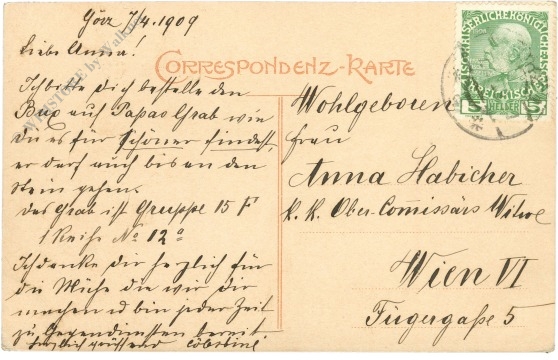 Görz 7/4. 1909
Liebe Anna!
Ich bitte Dich bestelle den
Bux auf Papas Grab wie
Du es für schöner findest,
er darf auch bis an den
Stein gehen.
Das Grab ist Gruppe 15 F
1 Reihe No 12a
Ich danke Dir herzlich für
die Mühe die wir Dir
machen u bin jeder Zeit
zu Gegendiensten bereit
herzlich grüssend
CORRESPONDENZ-KARTE
Wohlgeboren
Frau
Anna Habicher
k. k. Ober-Comissärs Witwe
Wien VI
Fügergaße 5
1908
5 HELLER 5